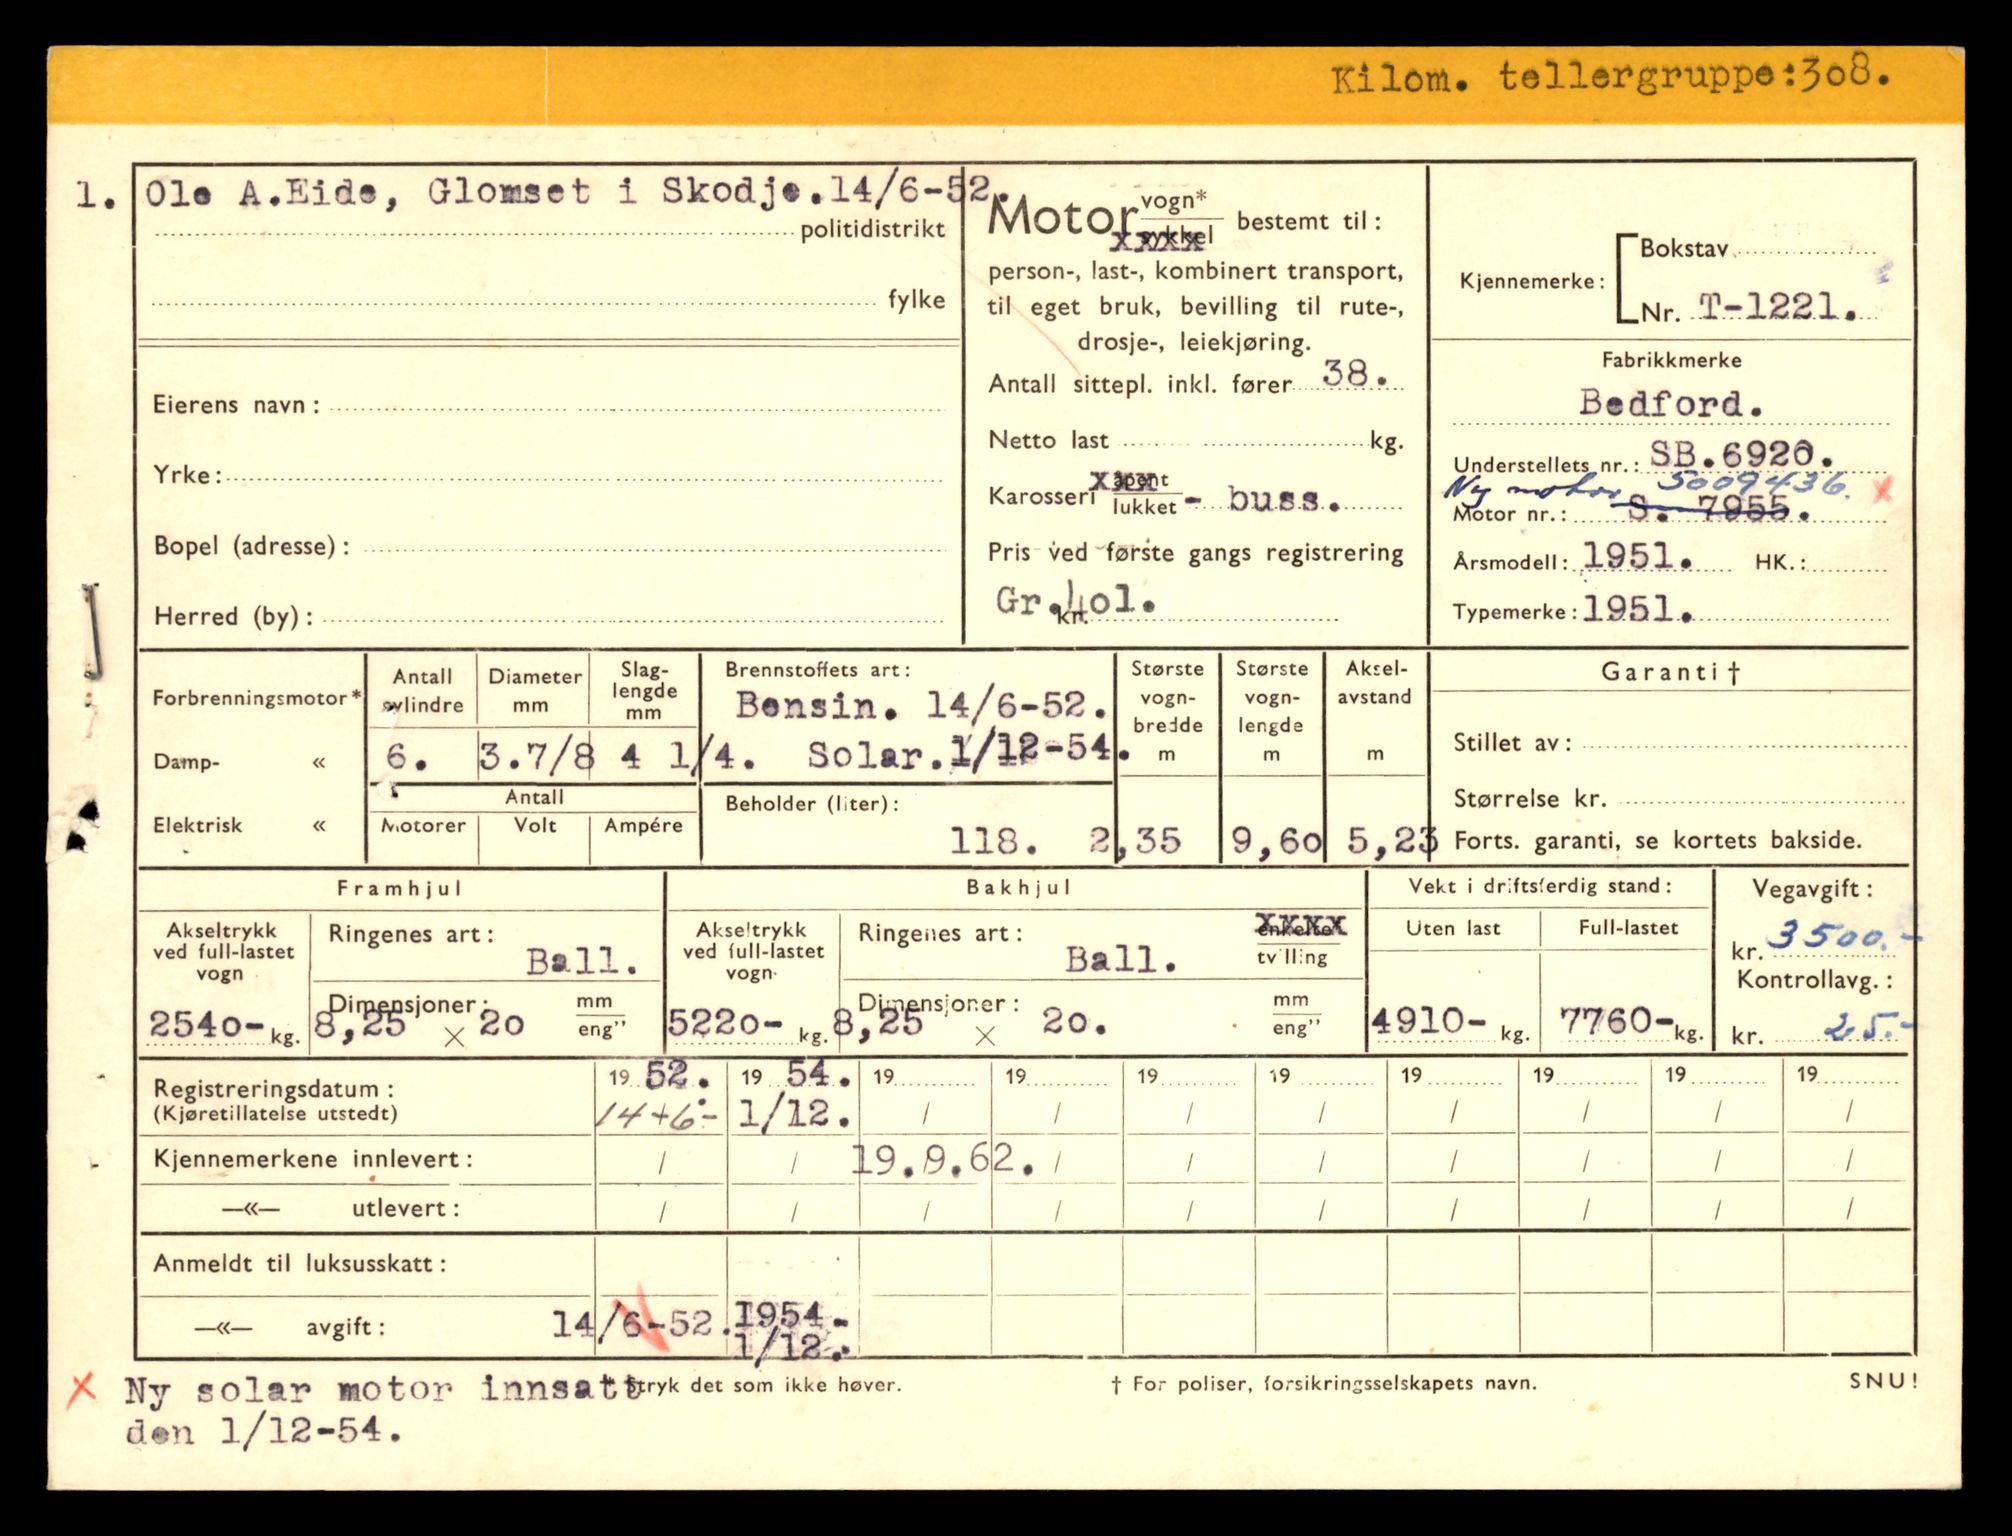 Kilom. tellergruppe:308.
1. Ole A.Eide, Glomset i Skodje.14/6-52.
politidistrikt
fylke
Eierens navn:
Yrke:
Bopel (adresse):
Herred (by):
Motor vogn* sykkel bestemt til:
xxxx
person-, last-, kombinert transport,
til eget bruk, bevilling til rute-,
drosje-, leiekjøring.
Antall sittepl. inkl. fører 38.
Netto last kg.
Karosseri åpent xxx
lukket - buss.
Pris ved første gangs registrering
Gr.401.
kr.
Kjennemerke: Bokstav
Nr. T-1221.
Fabrikkmerke
Bedford.
Understellets nr.: SB.6920.
Ny motor 5009436. x
Motor nr.: S. 7955.
Årsmodell: 1951. HK.:
Typemerke: 1951.
Forbrenningsmotor*
Damp- «
Elektrisk «
Antall sylindre
Diameter mm
Slaglengde mm
6. 3.7/8 4 1/4.
Antall
Motorer Volt Ampére
Brennstoffets art:
Bensin. 14/6-52.
Solar.1/12-54.
Beholder (liter):
118.
Største vognbredde m
2,35
Største vognlengde m
9,60
Akselavstand m
5,23
Garanti †
Stillet av:
Størrelse kr.
Forts. garanti, se kortets bakside.
Framhjul
Akseltrykk ved full-lastet vogn
2540- kg.
Ringenes art:
Ball.
Dimensjoner: mm
8,25 × 20 eng”
Bakhjul
Akseltrykk ved full-lastet vogn
5220- kg.
Ringenes art: enkelte xxxx
Ball. tvilling
Dimensjoner: mm
8,25 × 20. eng”
Vekt i driftsferdig stand:
Uten last Full-lastet
4910- kg. 7760- kg.
Vegavgift:
kr. 3500.-
Kontrollavg.:
kr. 25.-
Registreringsdatum: 19 52. 19 54. 19 19 19 19 19 19 19 19
(Kjøretillatelse utstedt) 14+6.- 1/12. / / / / / / / /
Kjennemerkene innlevert: / / 19.9.62. / / / / / / /
—«— utlevert: / / / / / / / / / /
Anmeldt til luksusskatt:
—«— avgift: 14/6-52. 1954.-
1/12.-
x Ny solar motor innsatt
den 1/12-54.
* Stryk det som ikke høver.
† For poliser, forsikringsselskapets navn.
SNU!